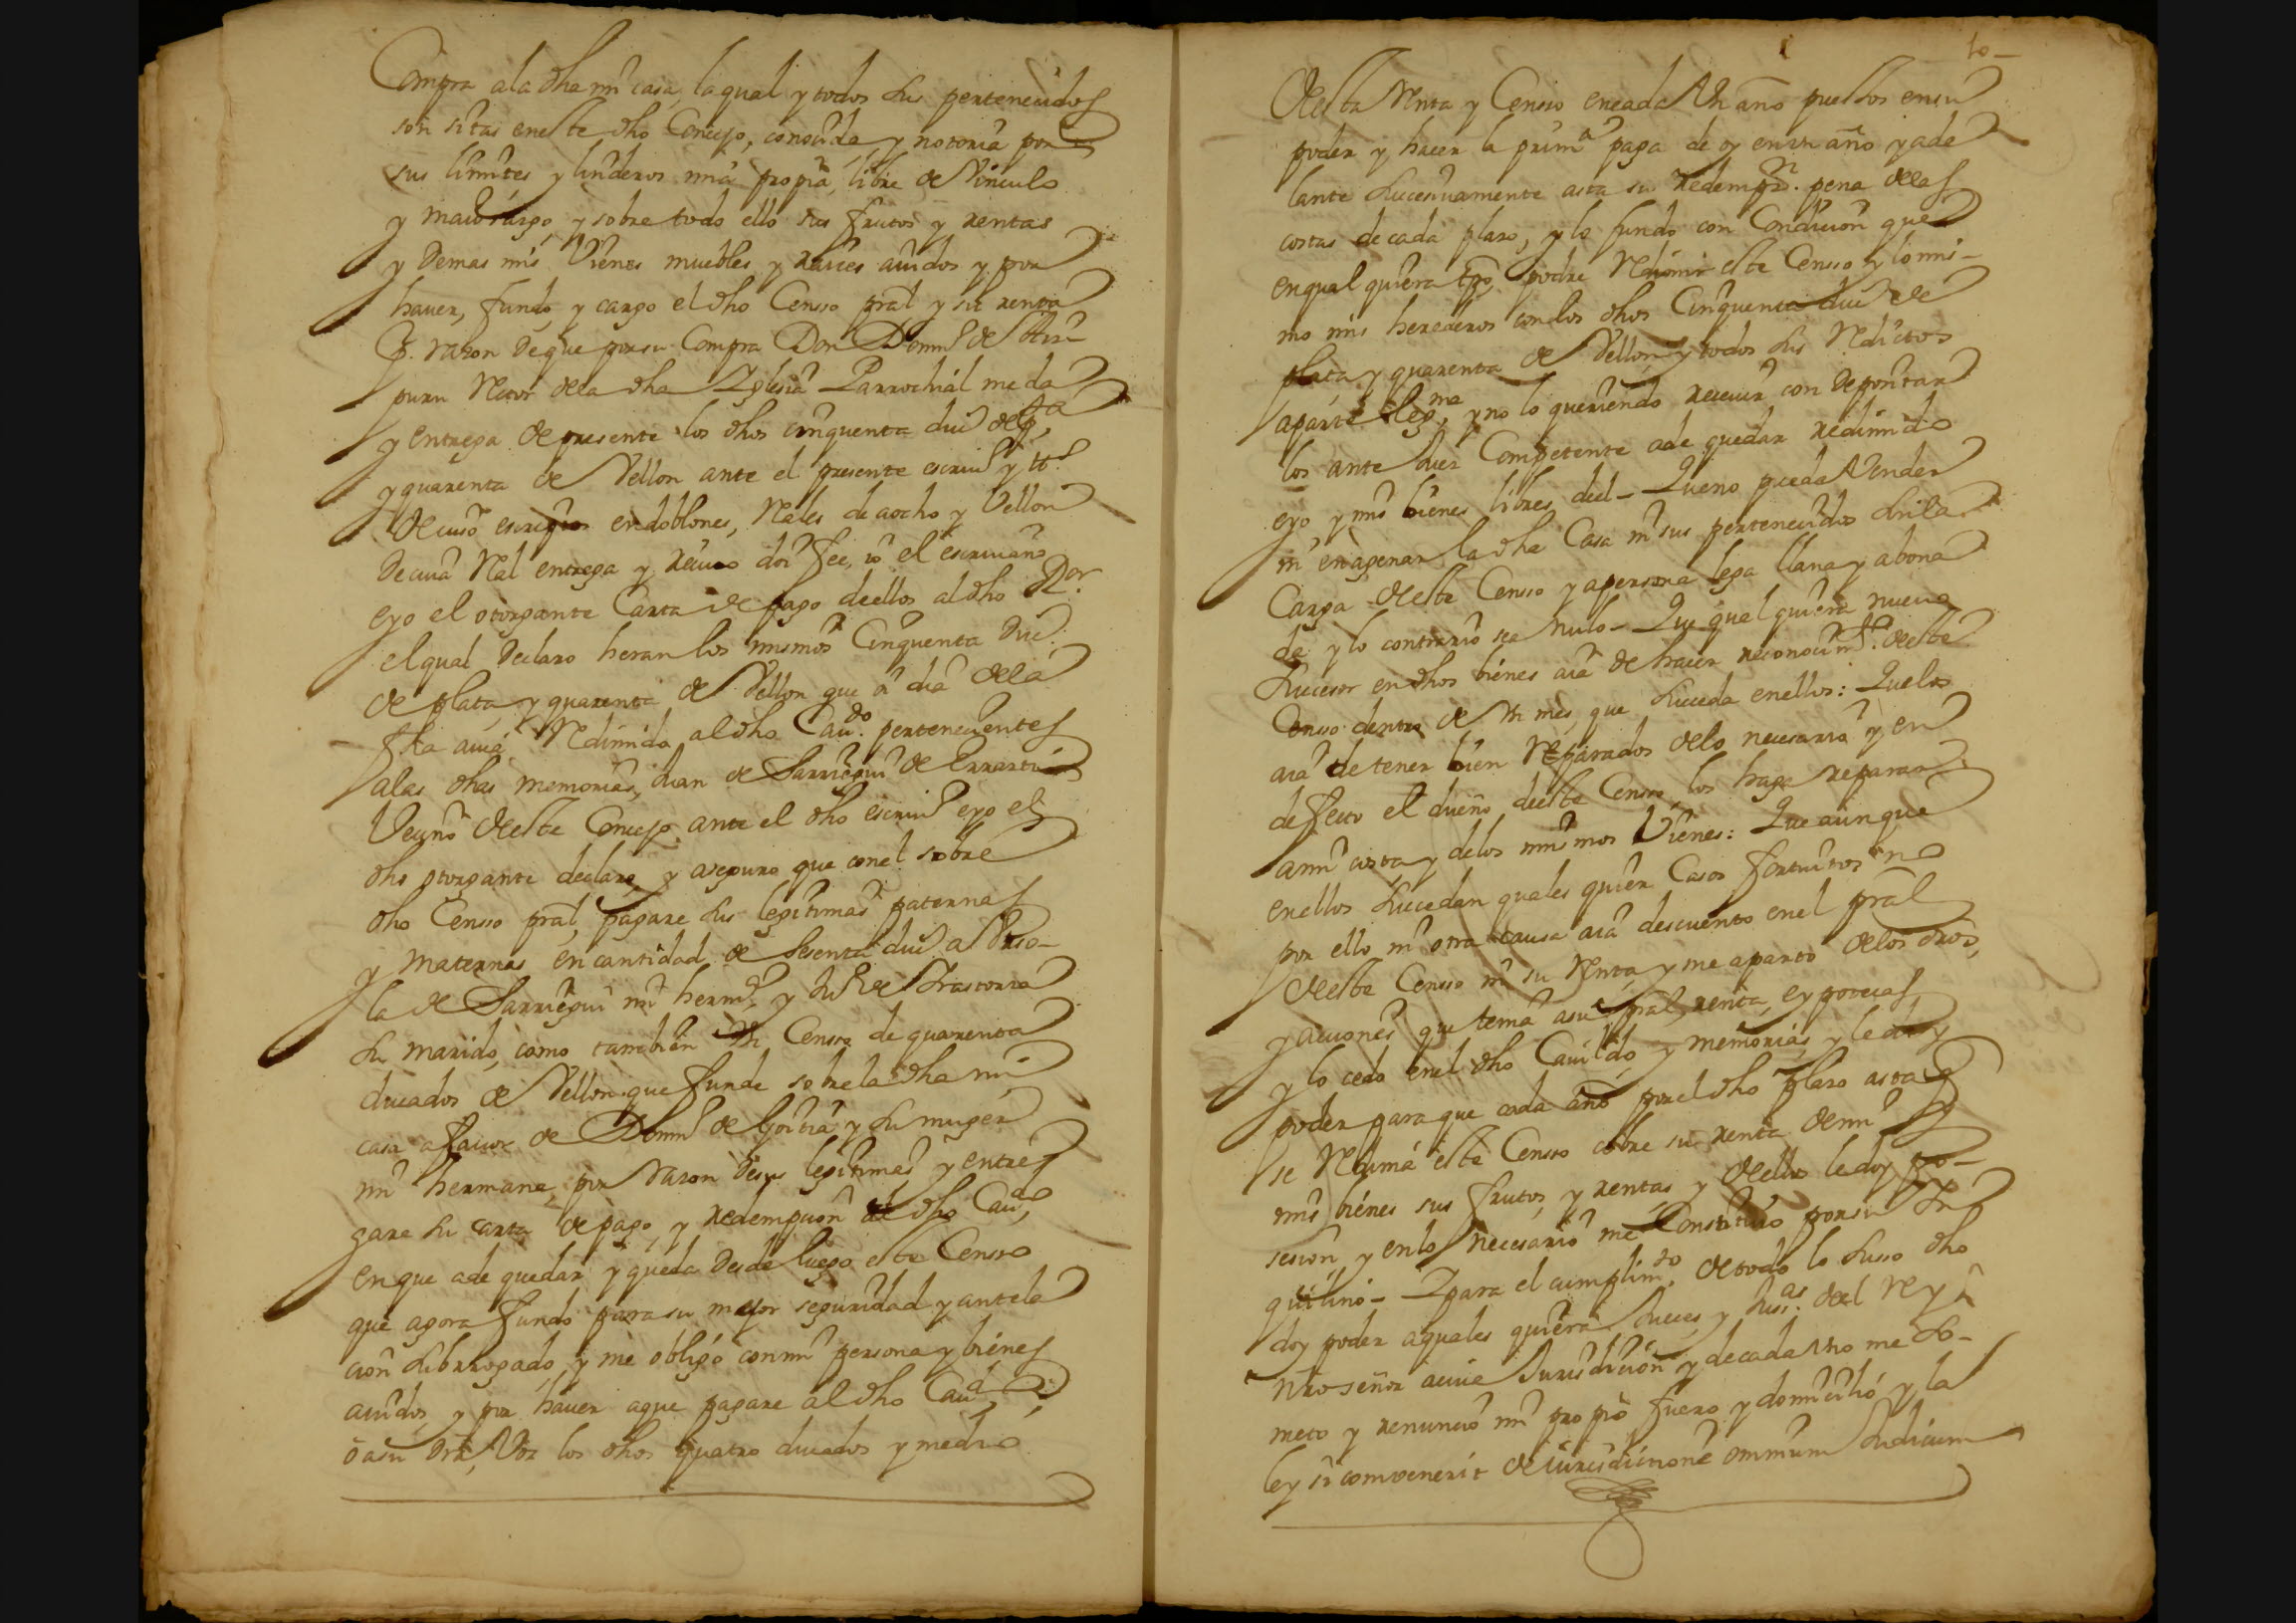 Compra ala dha mi casa, la qual y todos sus pertenecidos
son sitas eneste dho Concejo, conocida, y notoria por
sus limites y linderos mia propia, libre de Vinculo
y maiorazgo, y sobre todo ello sus frutos y rentas
y demas mis Vienes muebles y raices auidos y por
hauer, fundo, y cargo el dho Censso pral y su renta
P. razon de que por su Compra Don Domin.º de
puru Retor dela dha Iglesia Parrochial me da
y entrega de presente los dhos cinquenta duc.s de p.ta
y quarenta de Vellon ante el presente escriu.º y tt.º
de iuso escriptos en doblones, Rales de aocho y Vellon
de cuia Ral entrega y reciuo doi fee, io el escriuano
eyo el otorgante Carta de pago dellos al dho R.or
el qual declaro heran los mismos Cinquenta Duc.s
de plata, y quarenta de Vellon que oi dia dela
fha auia Redimido al dho Cau.do pertenecientes
alas dhas memorias, Juan de Sarriegui de Errarti
Vecino deeste Concejo, ante el dho escriu.º eyo el
dho otorgante declaro, y aseguro que conel sobre
dho Censso pral, pagare sus legitimas paternas
y maternas en cantidad de sesenta duc.s a Vrso-
la de Sarriegui mi herm.na y Ju.º de
su marido, como tambien Vn Censso de quarenta
ducados de Vellon que funde sobre la dha mi
casa afauor de Domin.º de Goitia y su muger
mi hermana, por razon desus legitimas y entre
gare su carta de pago, y redempcion al dho Cau.do,
en que ade quedar y queda desde luego este Censso
que agora fundo para su mejor seguridad y antela
cion subrrogado, y me obligo con mi persona y bienes
auidos, y por hauer aque pagare al dho Cau.do
o asu dra Voz los dhos quatro ducados y medio
10-
Deesta Renta y Censso encada Vn año puestos ensu
poder y hacer la prim.a paga de oy en vn año y ade
lante sucesiuamente asta su redemp.on pena delas
costas de cada plazo, y lo fundo con Condicion que
en qual quiera tpo podre Redimir este Censso y lo mis-
mo mis herederos con los dhos Cinquenta duc.s de
plata y quarenta de Vellon, y todos sus Reditos
aparte leg.ma, y no lo queriendo receuir con depositar
los ante Juez Competente ade quedar redimido
eyo, y mis bienes libres del - Que no pueda Vender
ni enagenar la dha Casa ni sus pertenecidos sin la
Carga deeste Censso y apersona lega llana y abona
da y lo contrario sea nulo - Que qual quiera nueuo
Sucesor en dhos bienes aia de hacer reconocim.to deeste
Censso dentro de Vn mes, que suceda enellos: Que los
aia de tener bien Reparados delo necesario y en
defecto el dueño deeste Censso los haga reparar
ami costa y delos mismos Vienes: Que aunque
enellos sucedan quales quier Casos fortuitos no
por ello ni otra causa aia descuento enel pral
deeste Censso ni su Renta, y me aparto delos dros,
y acciones que tenia asu pral, renta, eypotecas
y lo cedo enel dho Cauildo, y memorias, y le doy
poder para que cada año por el dho plazo asta q
se Redima este Censso cobre su renta de mi y
mis bienes sus frutos, y rentas, y deellos le doy po-
sesion, y enlo necesario me Constituio por su In
quilino - I para el cumplim.to de todo lo suso dho
doy poder aquales quiera Jueces y Jus.as del rey
nro señor acuia Jurisdicion y de cada Vno me so-
meto y renuncio mi propio fuero y domicilio y la
ley si conuenerit de iurisdictione omnium Judicum